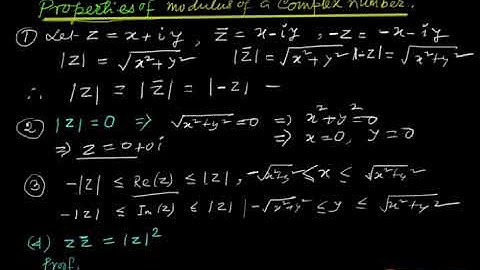 Properties of modulus of a Complex number.
① Let z = x + iy , z̄ = x - iy , -z = -x - iy
|z| = √x²+y² |z̄| = √x²+y² |-z| = √x²+y²
∴ |z| = |z̄| = |-z| -
② |z| = 0 ⇒ √x²+y² = 0 ⇒ x²+y² = 0
⇒ z = 0+0i ⇒ x=0, y=0
③ -|z| ≤ Re(z) ≤ |z| , -√x²+y² ≤ x ≤ √x²+y²
-|z| ≤ Im(z) ≤ |z| | -√x²+y² ≤ y ≤ √x²+y²
(4) z z̄ = |z|²
Proof.